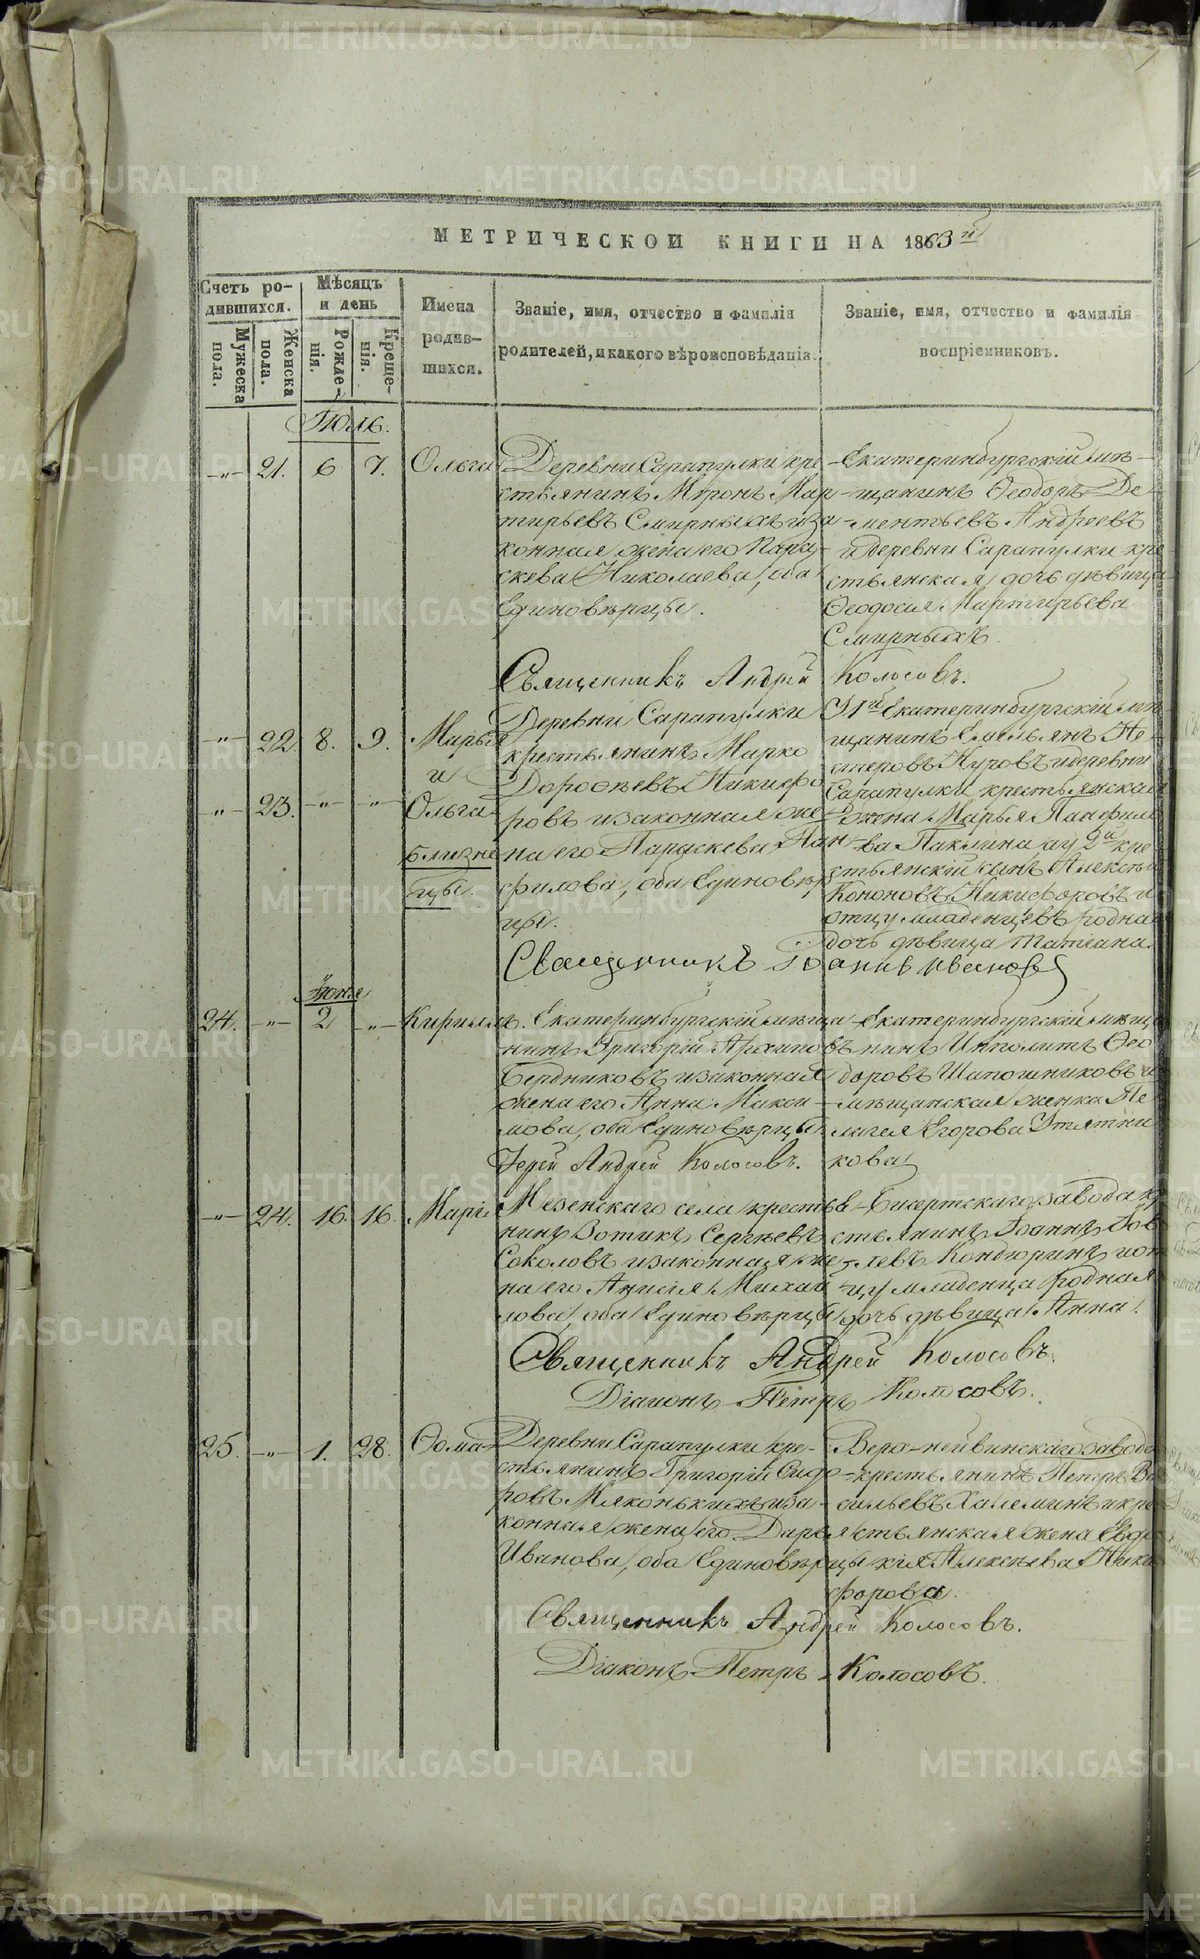 МЕТРИЧЕСКОЙ КНИГИ НА 1863й
Счетъ ро-
дившихся.
Мужеска
пола.
Женска
пола.
Мѣсяцъ
и день
Рожде-
нія.
Креще-
нія.
Имена
родив-
шихся.
Званіе, имя, отчество и фамилія
родителей, и какого вѣроисповѣданія.
Званіе, имя, отчество и фамилія
воспріемниковъ.
Іюль.
-"- 21. 6 7. Ольга
Деревни Сарапулки кре-
стьянинъ Миронъ Мар-
тирьевъ Смирныхъ и за-
конная жена его Пара-
скева Николаева, оба
Единовѣрцы.
Екатеринбургскій мѣ-
щанинъ Ѳеодоръ Де-
ментьевъ Андреевъ
и деревни Сарапулки кре-
стьянская дочь дѣвица
Ѳеодосія Мартирьева
Смирныхъ.
Священникъ Андрей Колосовъ.
-"- 22. 8. 9. Марья
и
-"- 23. -"- -"- Ольга
близне-
цы.
Деревни Сарапулки
крестьянинъ Марко
Дороѳеевъ Никифо-
ровъ и законная же-
на его Параскева Пан-
филова, оба Единовѣр-
цы.
У 1й Екатеринбургскій мѣ-
щанинъ Емельянъ Не-
стеровъ и деревни
Сарапулки крестьянская
жена Марья Панфило-
ва Паклина а у 2й кре-
стьянскій сынъ Алексѣй
Кононовъ Никифоровъ и
отцу младенцевъ родная
дочь дѣвица Татіана.
Священникъ Іоаннъ
Іюня
24. -"- 2 -"- Кириллъ.
Екатеринбургскій мѣща-
нинъ Григорій Архиповъ
Бердниковъ и законная
жена его Анна Макси-
мова, оба Единовѣрцы.
Екатеринбургскій мѣща-
нинъ Ипполитъ Ѳео-
доровъ Шапошниковъ и
мѣщанская женка Пе-
лагея Егорова Утятни-
кова.
Іерей Андрей Колосовъ.
-"- 24. 16. 16. Марія
Мезенскаго села крестья-
нинъ Зотикъ Сергѣевъ
Соколовъ и законная же-
на его Анисія Михай-
лова, оба Единовѣрцы
Бисертскаго завода кре-
стьянинъ Іоаннъ Іов-
левъ Кондюринъ и от-
цу младенца родная
дочь дѣвица Анна.
Священникъ Андрей Колосовъ.
Діаконъ Петръ Колосовъ.
25. -"- 1. 28. Ѳома
Деревни Сарапулки кре-
стьянинъ Григорій Сидо-
ровъ Мяконькихъ и за-
конная жена его Дарья
Иванова, оба Единовѣрцы
Веро-нейвинскаго завода
крестьянинъ Петръ Ва-
сильевъ Халеминъ и кре-
стьянская жена Евдо-
кія Алексѣева Ники-
форова.
Священникъ Андрей Колосовъ.
Діаконъ Петръ Колосовъ.
METRIKI.GASO-URAL.RU